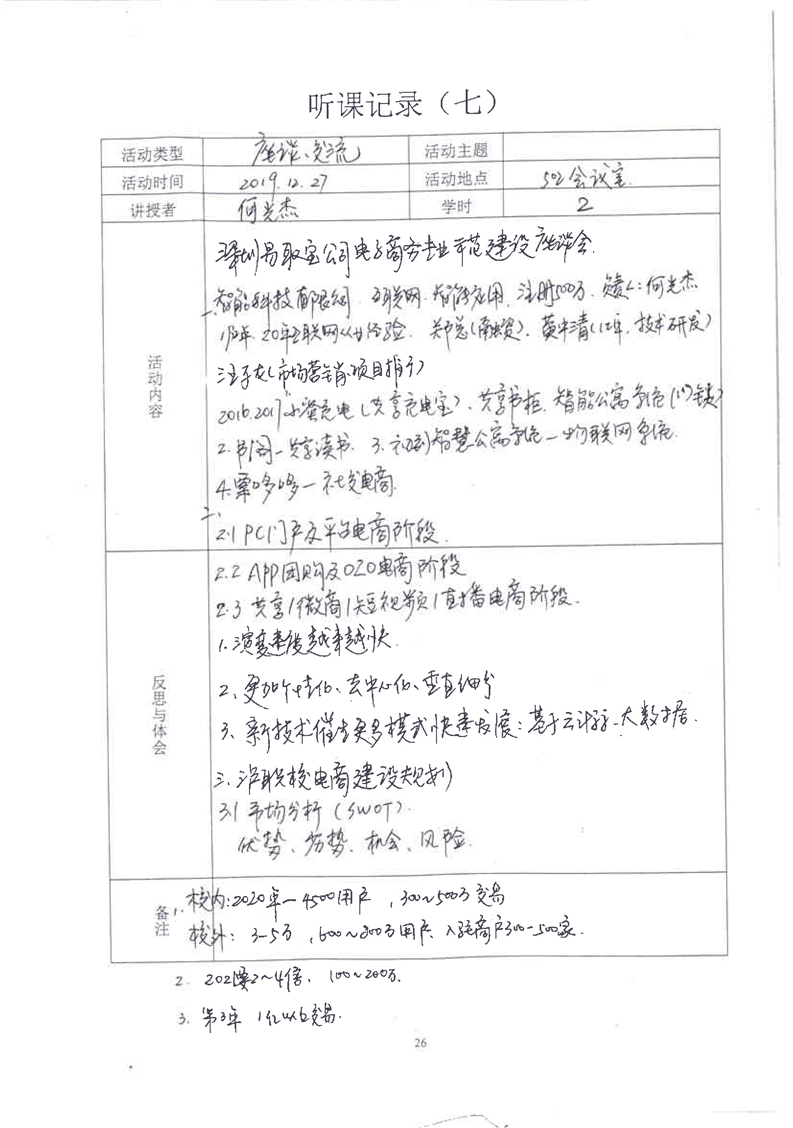 听课记录（七）
活动类型 座谈、交流 活动主题
活动时间 2019.12.27 活动地点 502会议室
讲授者 何光杰 学时 2
活动内容
深圳易取宝公司电子商务专业示范建设座谈会
一、智能科技有限公司 互联网.智能应用，注册500万. 何光杰
20年互联网从业经验. 郑总(融资)、黄中清(12年，技术研发)
(市场营销项目推广)
2016.2017 小萤充电（共享充电宝）、共享书柜、智能公寓系统(门锁)
2.书阁—共享读书. 3. 智慧公寓系统—物联网系统.
4.栗哆哆—社交电商.
二、
2.1 PC门户及平台电商阶段.
反思与体会
2.2 APP团购及O2O电商阶段
2.3 共享/微商/短视频/直播电商阶段.
1.演变速度越来越快.
2、更加个性化、去中心化、垂直细分
3、新技术催生更多模式快速发展：基于云计算、大数据.
三、职校电商建设规划
3.1 市场分析（SWOT）.
优势、劣势、机会、风险.
备注
1. 校内:2020年—4500用户，300~500万交易
校外：3-5万，600~800万用户、入驻商户300-500家.
2. 2~4倍、100~200万.
3. 第3年 1亿以上交易.
26